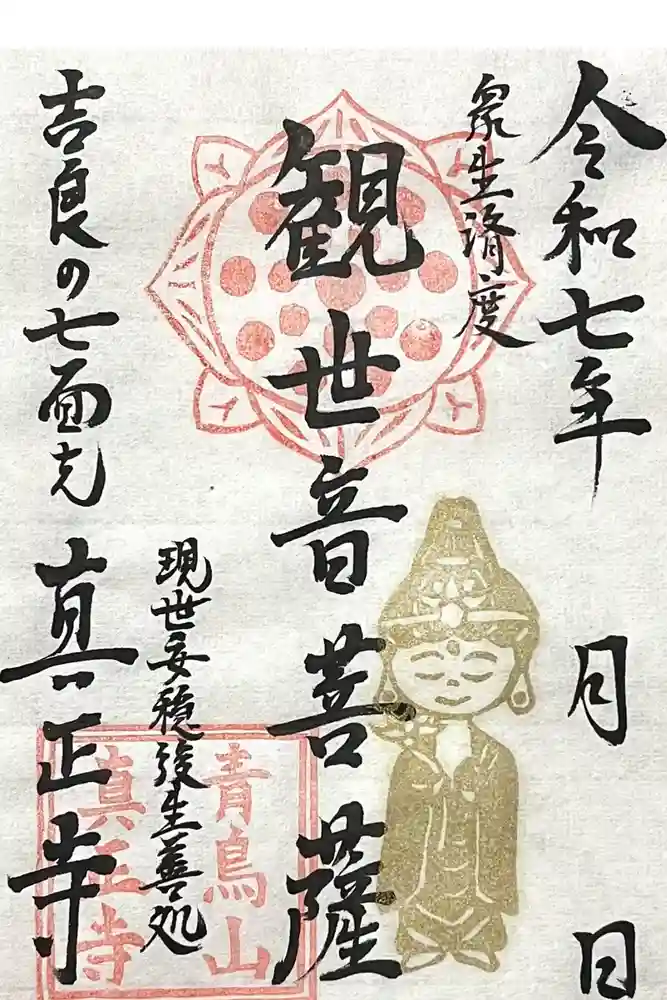 令和七年 月 日
衆生済度
観世音菩薩
現世安穏後生善処
吉良の七面さん 真正寺
青鳥山
真正寺